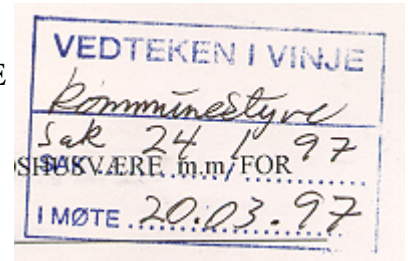 VEDTEKEN I VINJE
E
Kommunestyre
Sak 24 / 97
SHUSVÆRE m.m/FOR
SAK
I MØTE 20.03.97